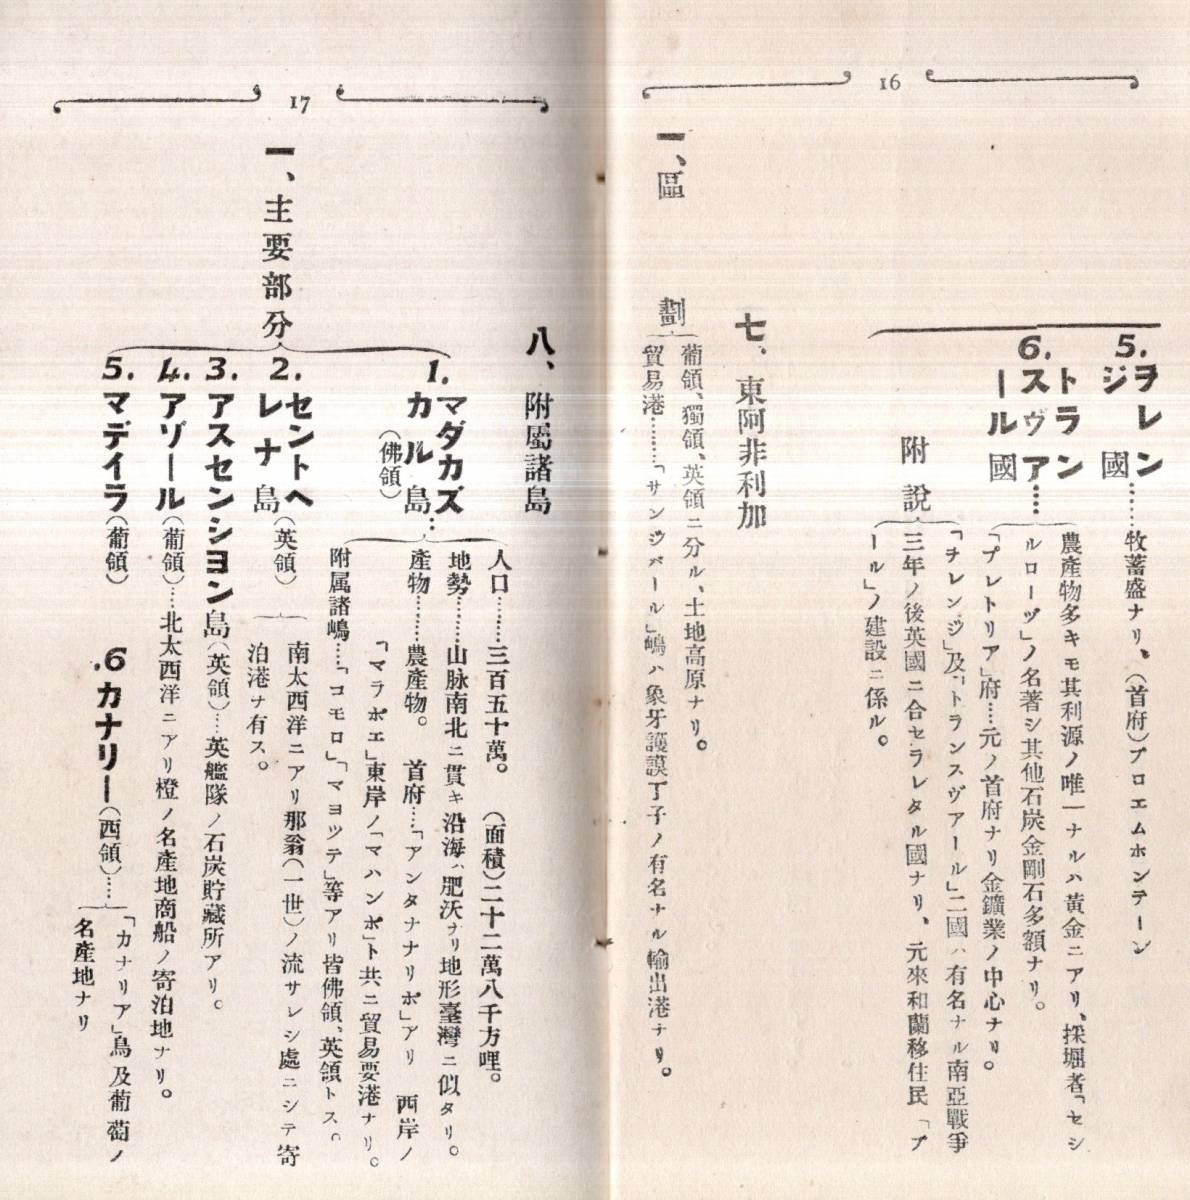 16
5. ヲレン
ジ國……牧蓄盛ナリ、(首府)ブロエムホンテーン
6. トラン
スヴア……
ール國
農產物多キモ其利源ノ唯一ナルハ黃金ニアリ、採堀者「セシ
ルローヅ」ノ名著シ其他石炭金剛石多額ナリ。
「プレトリア」府…元ノ首府ナリ金鑛業ノ中心ナリ。
附說
「ヲレンジ」及「トランスヴアール」二國ハ有名ナル南亞戰爭
三年ノ後英國ニ合セラレタル國ナリ、元來和蘭移住民「ブ
ール」ノ建設ニ係ル。
七、東阿非利加
一、區劃
葡領、獨領、英領ニ分ル、土地高原ナリ。
貿易港……「サンジバール」嶋ハ象牙護謨丁子ノ有名ナル輸出港ナリ。
17
八、附屬諸島
一、主要部分
1. マダカズ
カル島…
(佛領)
人口……三百五十萬。(面積)二十二萬八千方哩。
地勢……山脉南北ニ貫キ沿海ハ肥沃ナリ地形臺灣ニ似タリ。
產物……農產物。首府…「アンタナナリボ」アリ 西岸ノ
「マラボエ」東岸ノ「マハンボ」ト共ニ貿易要港ナリ。
附属諸嶋…「コモロ」「マヨツテ」等アリ皆佛領、英領トス。
2. セントヘ
レナ島(英領)
南太西洋ニアリ那翁(一世)ノ流サレシ處ニシテ寄
泊港ナ有ス。
3. アスセンシヨン島(英領)…英艦隊ノ石炭貯藏所アリ。
4. アゾール(葡領)…北太西洋ニアリ橙ノ名產地商船ノ寄泊地ナリ。
5. マデイラ(葡領)
6. カナリー(西領)……
「カナリア」鳥及葡萄ノ
名產地ナリ